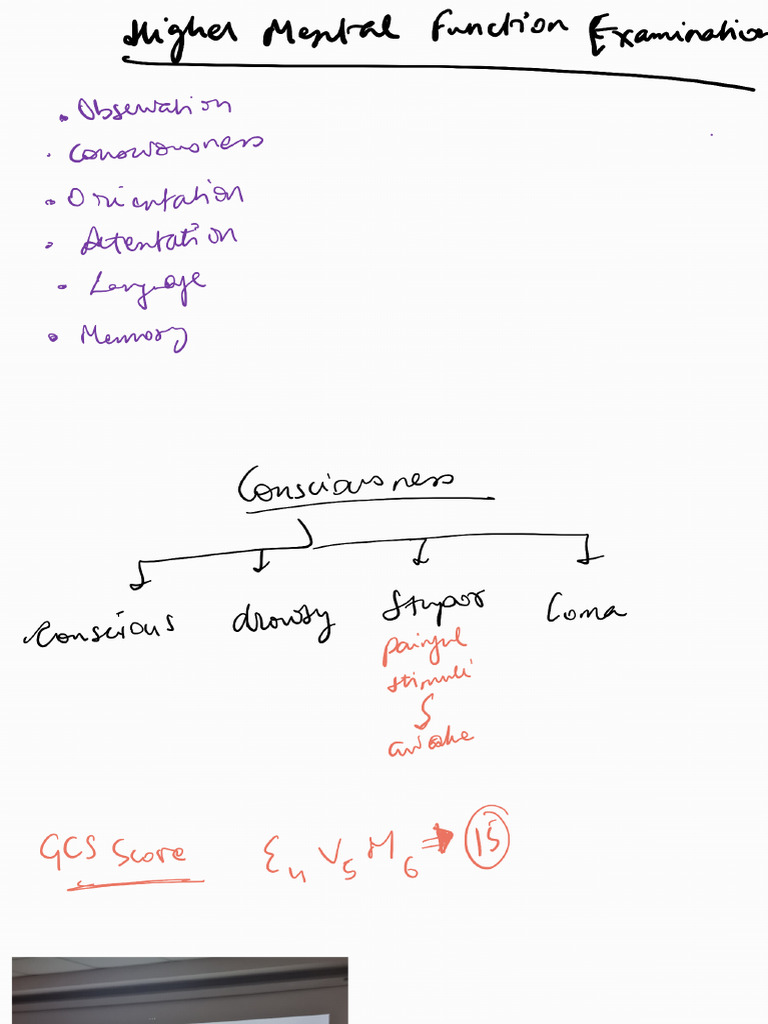 Higher Mental Function Examination
• Observation
• Consciousness
• Orientation
• Attentation
• Language
• Memory
Consciousness
Conscious drowsy Stupor Coma
painful
stimuli
awake
GCS Score E4 V5 M6 ⇒ 15